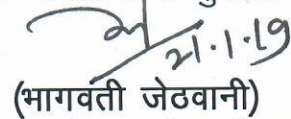 21.1.19
(भागवती जेठवानी)